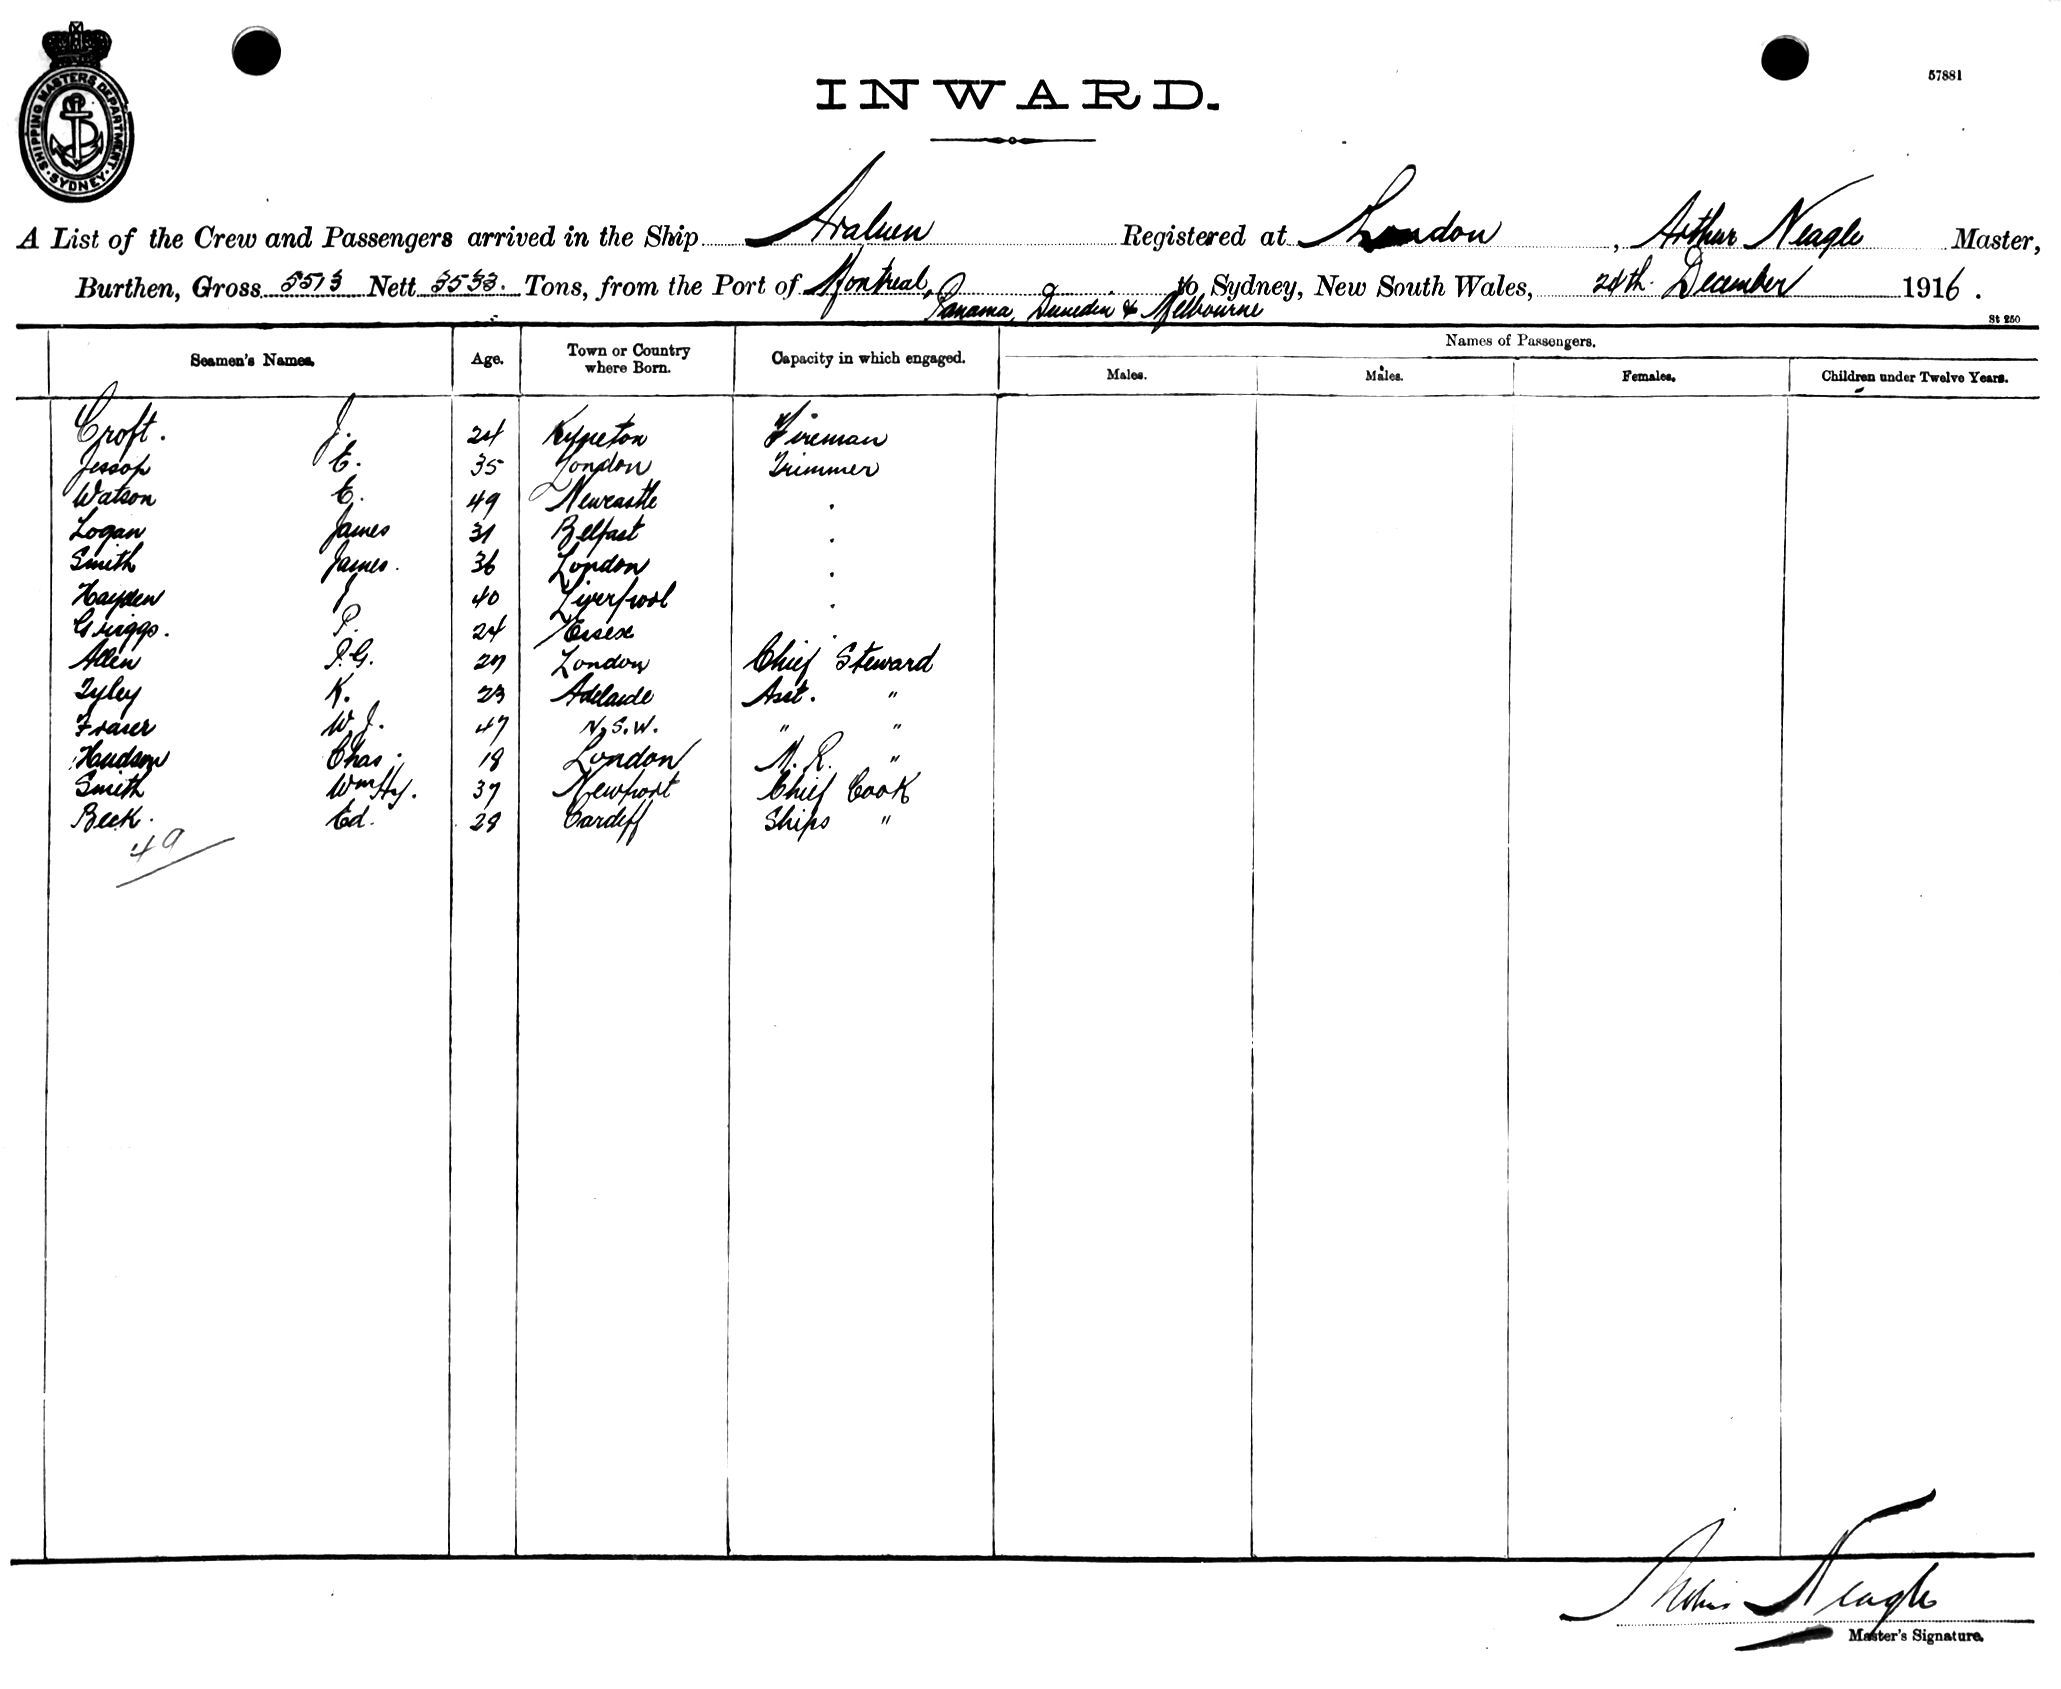 SHIPPING MASTERS DEPARTMENT · SYDNEY ·
57881
INWARD.
A List of the Crew and Passengers arrived in the Ship Araluen Registered at London, Arthur Neagle Master,
Burthen, Gross 5513 Nett 3533. Tons, from the Port of Montreal, to Sydney, New South Wales, 24th. December 1916.
Panama, Dunedin & Melbourne
St 250
Seamen's Names. Age. Town or Country where Born. Capacity in which engaged. Names of Passengers.
Males. Males. Females. Children under Twelve Years.
Croft. J. 24 Kyneton Fireman
Jessop E. 35 London Trimmer
Watson E. 49 Newcastle .
Logan James 31 Belfast .
Smith James. 36 London .
Hayden J 40 Liverpool .
Griggs. P. 24 Essex .
Allen P.G. 27 London Chief Steward
Tyley K. 23 Adelaide Asst. "
Fraser W.J. 47 N.S.W. " "
Hudson Chas. 18 London M.R. "
Smith Wm Hy. 37 Newport Chief Cook
Beck. Ed. 28 Cardiff Ships "
49
Arthur Neagle
Master's Signature.